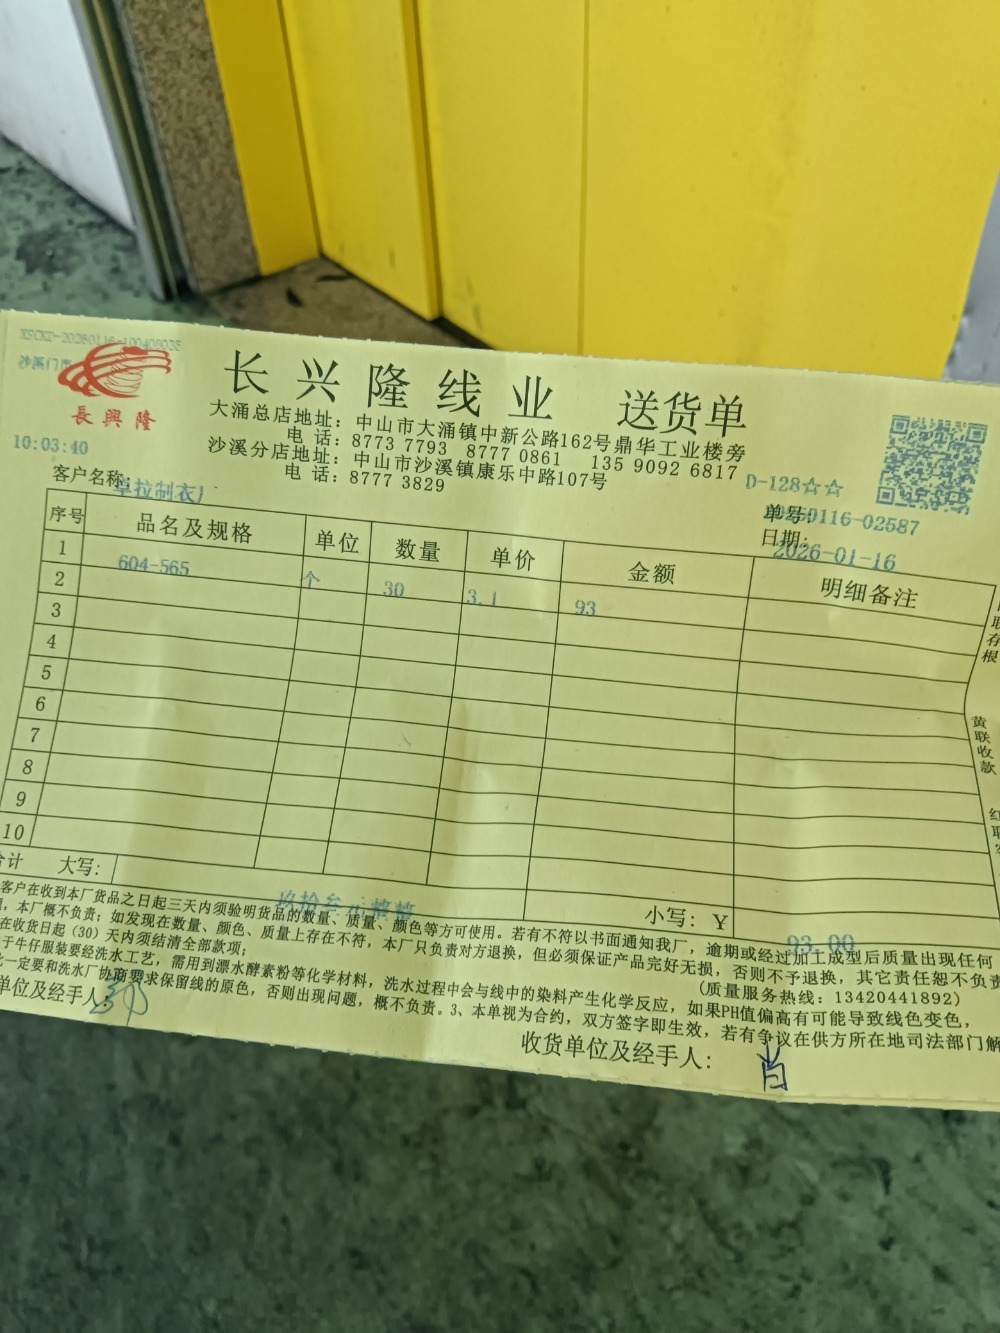 沙溪门市
長興隆
10:03:40
长兴隆线业 送货单
大涌总店地址：中山市大涌镇中新公路162号鼎华工业楼旁
电 话：8773 7793 8777 0861 135 9092 6817
沙溪分店地址：中山市沙溪镇康乐中路107号
电 话：8777 3829
D-128☆☆
客户名称：卓拉制衣厂
单号：20260116-02587
日期：2026-01-16
序号 品名及规格 单位 数量 单价 金额 明细备注
1 604-565 个 30 3.1 93
2
3
4
5
6
7
8
9
10
合计 大写：玖拾叁元整整 小写：Y 93.00
客户在收到本厂货品之日起三天内须验明货品的数量、质量、颜色等方可使用。若有不符以书面通知我厂，逾期或经过加工成型后质量出现任何
，本厂概不负责；如发现在数量、颜色、质量上存在不符，本厂只负责对方退换，但必须保证产品完好无损，否则不予退换，其它责任恕不负责
在收货日起（30）天内须结清全部款项； （质量服务热线：13420441892）
于牛仔服装要经洗水工艺，需用到漂水酵素粉等化学材料，洗水过程中会与线中的染料产生化学反应，如果PH值偏高有可能导致线色变色，
一定要和洗水厂协商要求保留线的原色，否则出现问题，概不负责。3、本单视为合约，双方签字即生效，若有争议在供方所在地司法部门解
单位及经手人：
收货单位及经手人：肖
联存根
黄联收款
红联